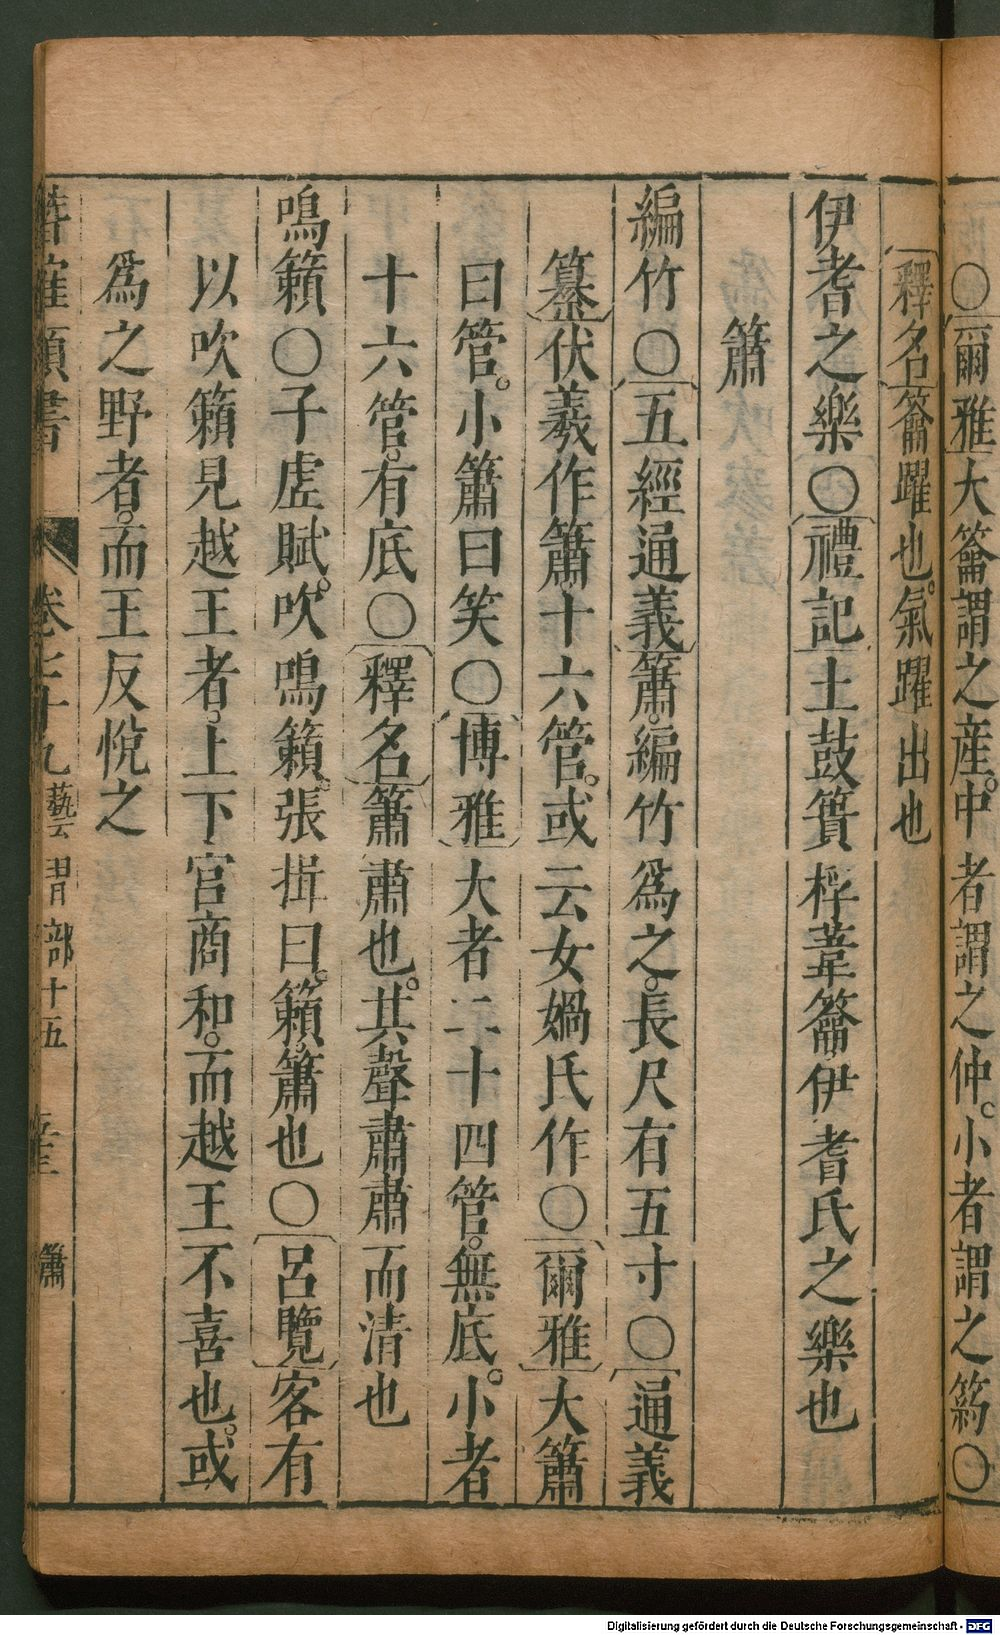 ○爾雅大籥謂之産中者謂之仲小者謂之箹○
釋名籥躍也氣躍出也
伊耆之樂○禮記土鼓蕢桴葦籥伊耆氏之樂也
簫
編竹○五經通義簫編竹爲之長尺有五寸○通義
纂伏羲作簫十六管或云女媧氏作○爾雅大簫
曰管小簫曰笑○博雅大者二十四管無底小者
十六管有底○釋名簫肅也其聲肅肅而清也
鳴籟○子虛賦吹鳴籟張揖曰籟簫也○呂覽客有
以吹籟見越王者上下宮商和而越王不喜也或
爲之野者而王反悅之
類書 卷七十九 藝習部十五 簫
Digitalisierung gefördert durch die Deutsche Forschungsgemeinschaft - DFG